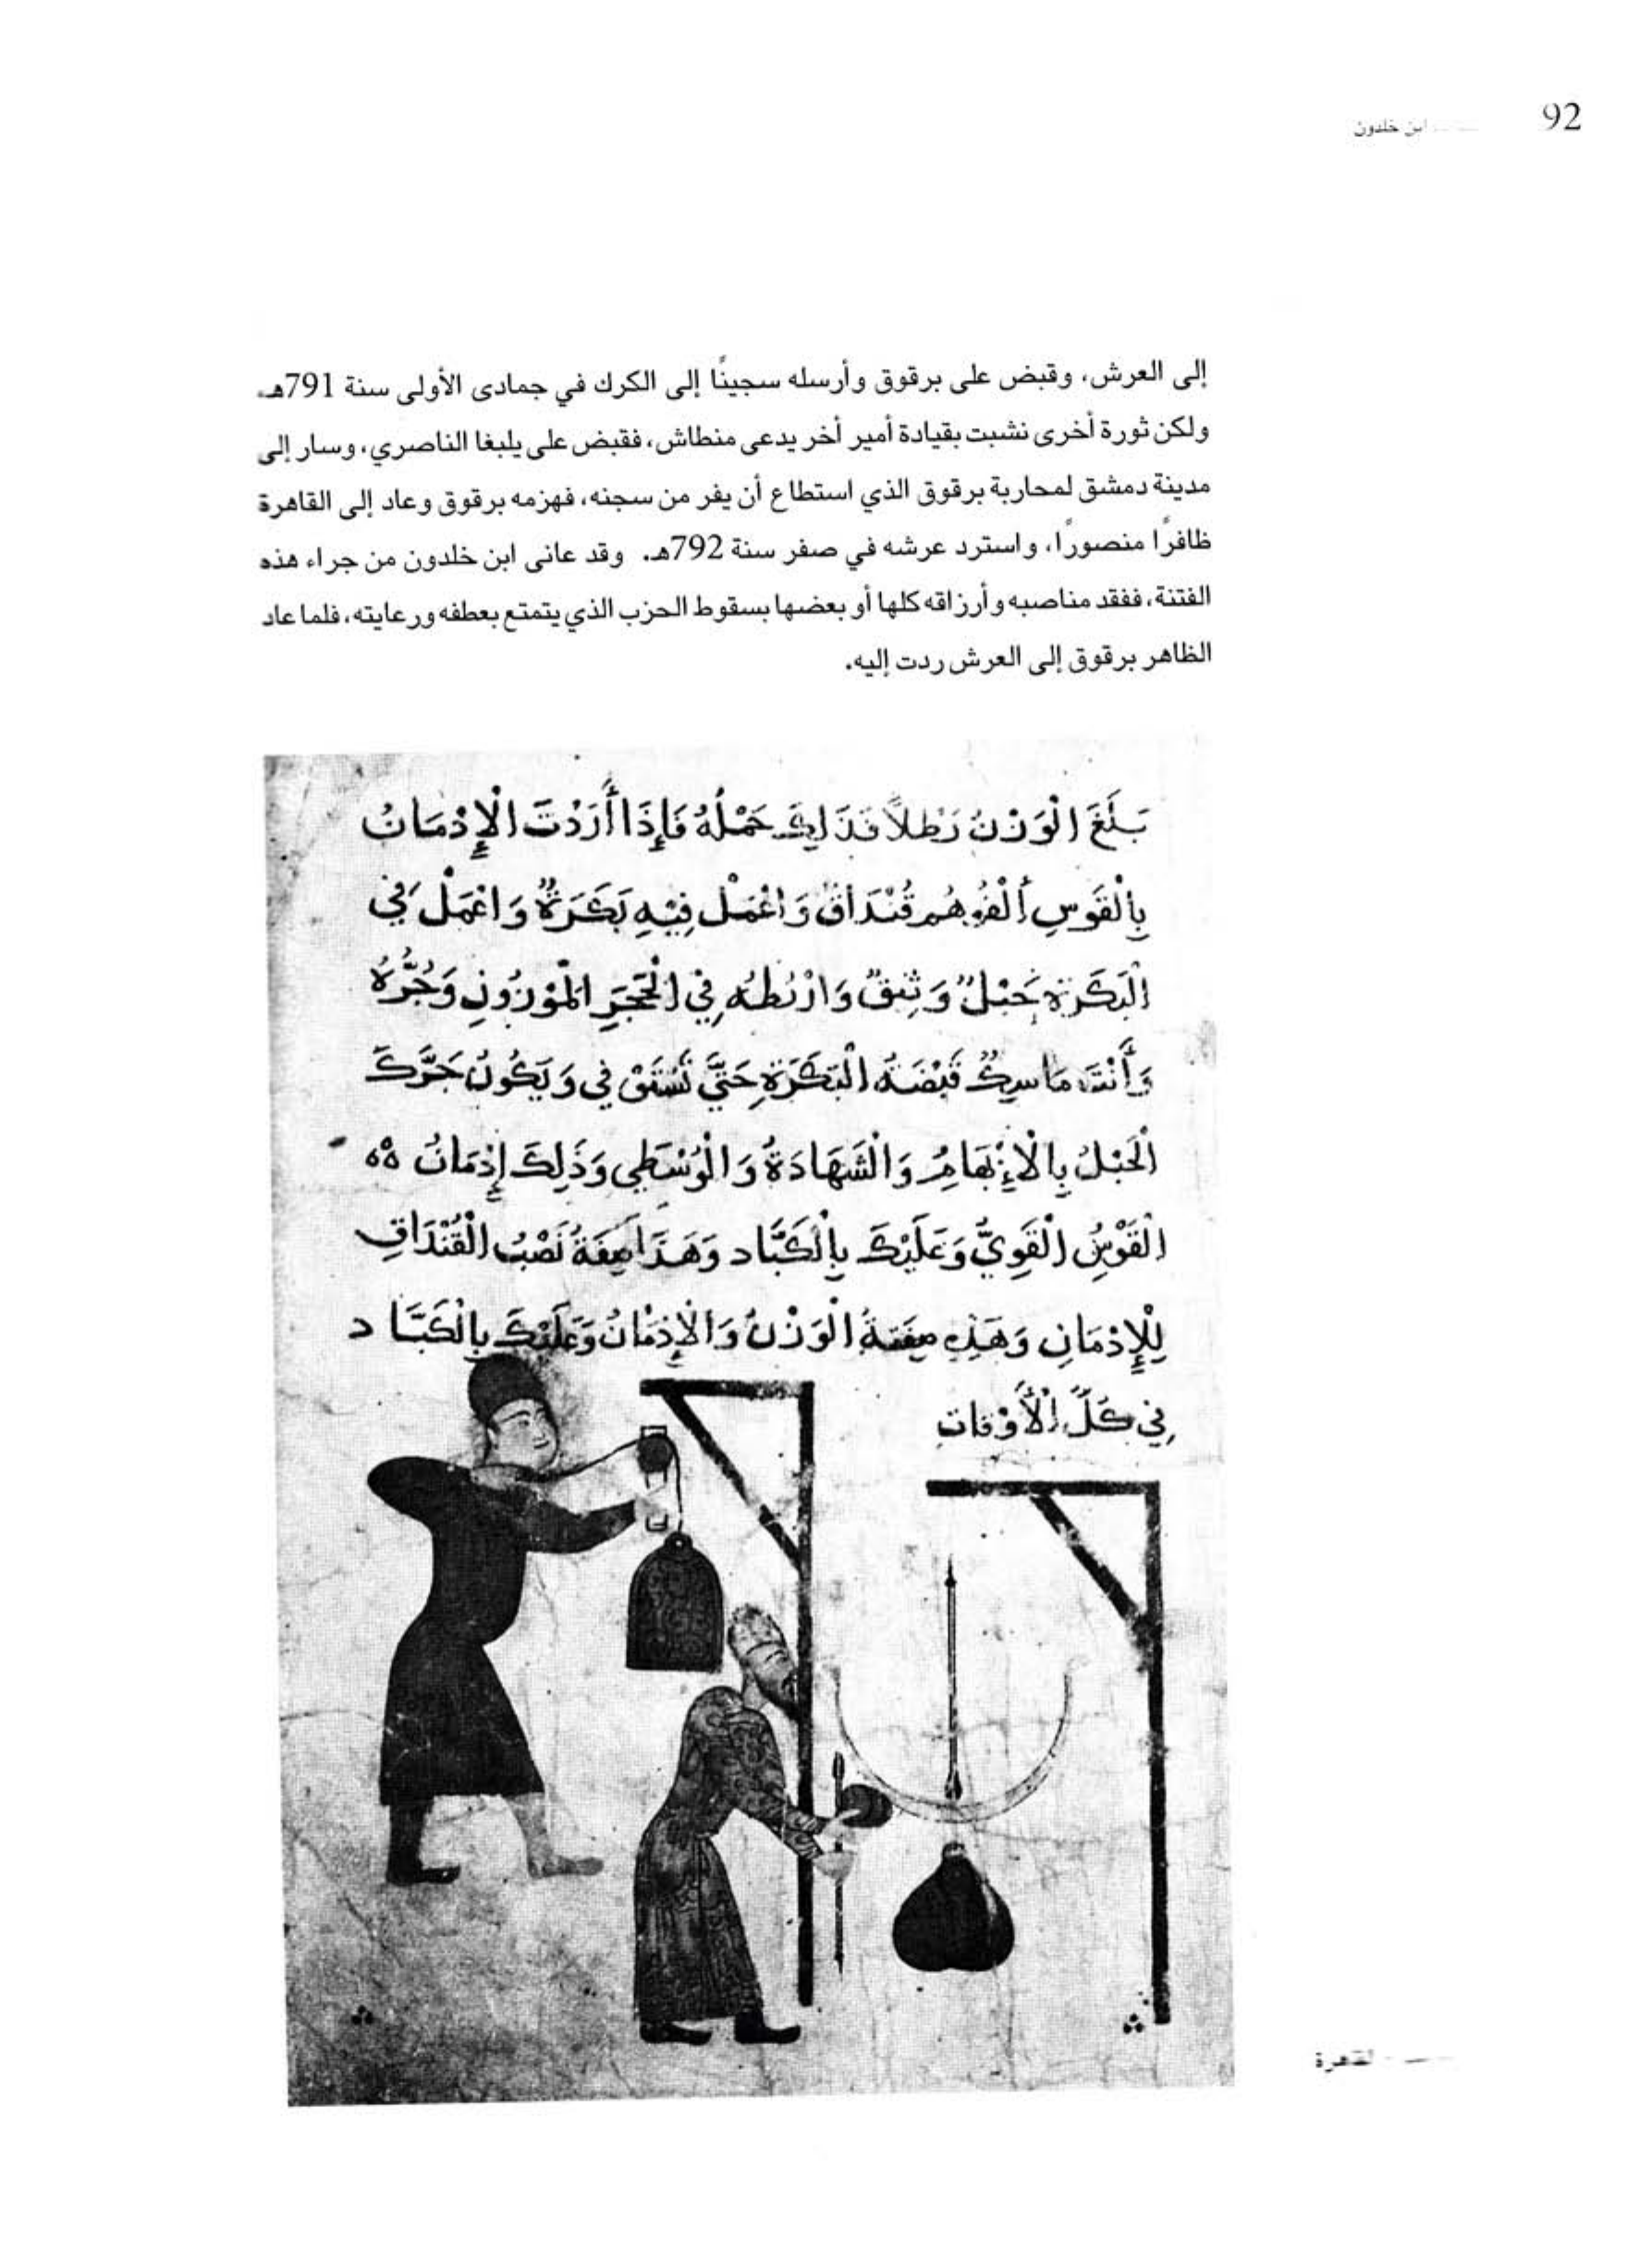 92
ابن خلدون
إلى العرش، وقبض على برقوق وأرسله سجينًا إلى الكرك في جمادى الأولى سنة 791هـ.
ولكن ثورة أخرى نشبت بقيادة أمير أخر يدعى منطاش، فقبض على يلبغا الناصري، وسار إلى
مدينة دمشق لمحاربة برقوق الذي استطاع أن يفر من سجنه، فهزمه برقوق وعاد إلى القاهرة
ظافرًا منصورًا، واسترد عرشه في صفر سنة 792هـ. وقد عانى ابن خلدون من جراء هذه
الفتنة، ففقد مناصبه وأرزاقه كلها أو بعضها بسقوط الحزب الذي يتمتع بعطفه ورعايته، فلما عاد
الظاهر برقوق إلى العرش ردت إليه.
بَلَغَ الْوَزْنُ رَطْلاً فَذَلِكَ حَمْلُهُ فَإِذَا أَرَدْتَ الْإِدْمَانُ
بِالْقَوسِ قُنْدَاقٌ وَاعْمَلْ فِيْهِ بَكَرَةٌ وَاعْمَلْ فِي
الْبَكَرَةِ حَبْلٌ وَثِيْقٌ وَارْبُطْهُ فِي الْحَجَرِ الْمَوْزُونِ وَجُرُّهُ
وَأَنْتَ مَاسِكٌ قَبْضَةُ الْبَكَرَةِ حَتَّي تَسْتَوْفِي وَيَكُونُ جَرَّكَ
الْحَبْلُ بِالْإِبْهَامِ وَالشَهَادَةُ وَالْوُسْطِي وَذَلِكَ إِدْمَانُ
الْقَوْسُ الْقَوِيُّ وَعَلَيْكَ بِالْكَبَّادِ وَهَذَا صِفَةُ نَصْبُ الْقُنْدَاقِ
لِلْإِدْمَانِ وَهَذِهِ صِفَةُ الْوَزْنُ وَالْإِدْمَانُ وَعَلَيْكَ بِالْكَبَّاد
فِي كُلِّ الْأَوْقَاتِ
القاهرة